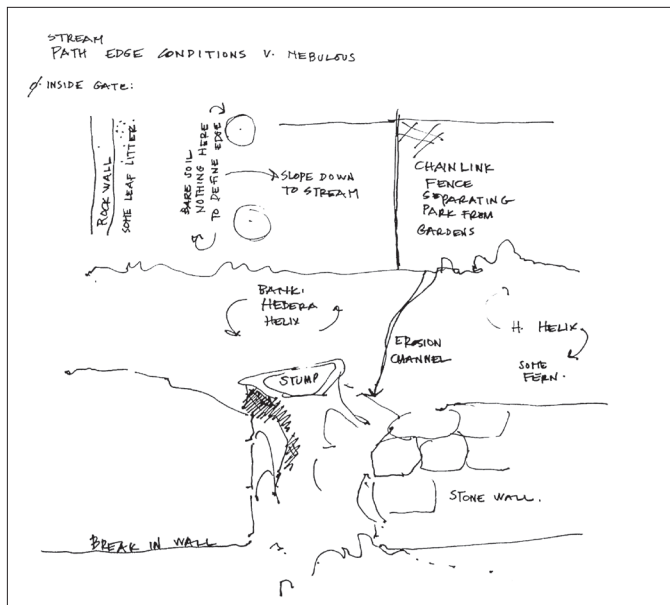 STREAM
PATH EDGE CONDITIONS V. NEBULOUS
INSIDE GATE:
ROCK WALL
SOME LEAF LITTER.
BARE SOIL
NOTHING HERE
TO DEFINE EDGE
SLOPE DOWN
TO STREAM
CHAIN LINK
FENCE
SEPARATING
PARK FROM
GARDENS
BANK:
HEDERA
HELIX
EROSION
CHANNEL
H. HELIX
SOME
FERN.
STUMP
STONE WALL.
BREAK IN WALL